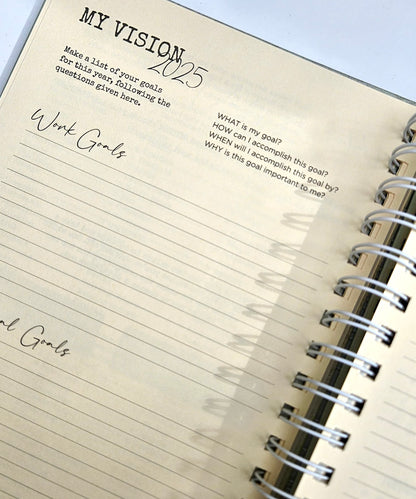 MY VISION
2025
Make a list of your goals
for this year, following the
questions given here.
WHAT is my goal?
HOW can I accomplish this goal?
WHEN will I accomplish this goal by?
WHY is this goal important to me?
Work Goals
Goals